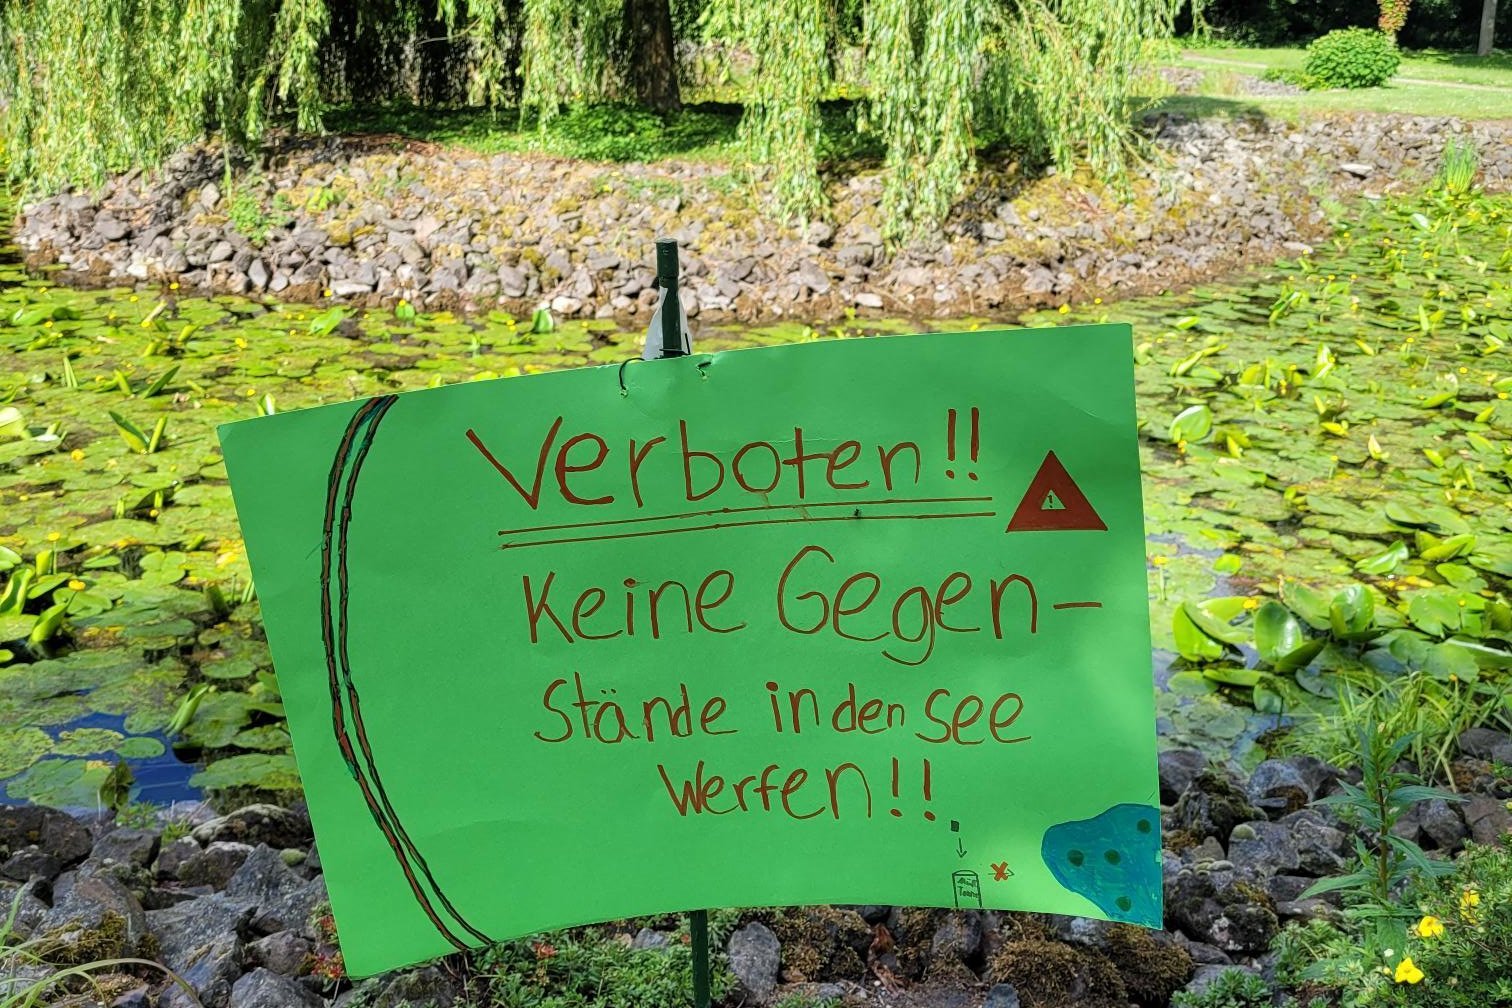 Verboten!!
!
Keine Gegen-
Stände in den See
Werfen!!
Müll
Tonne